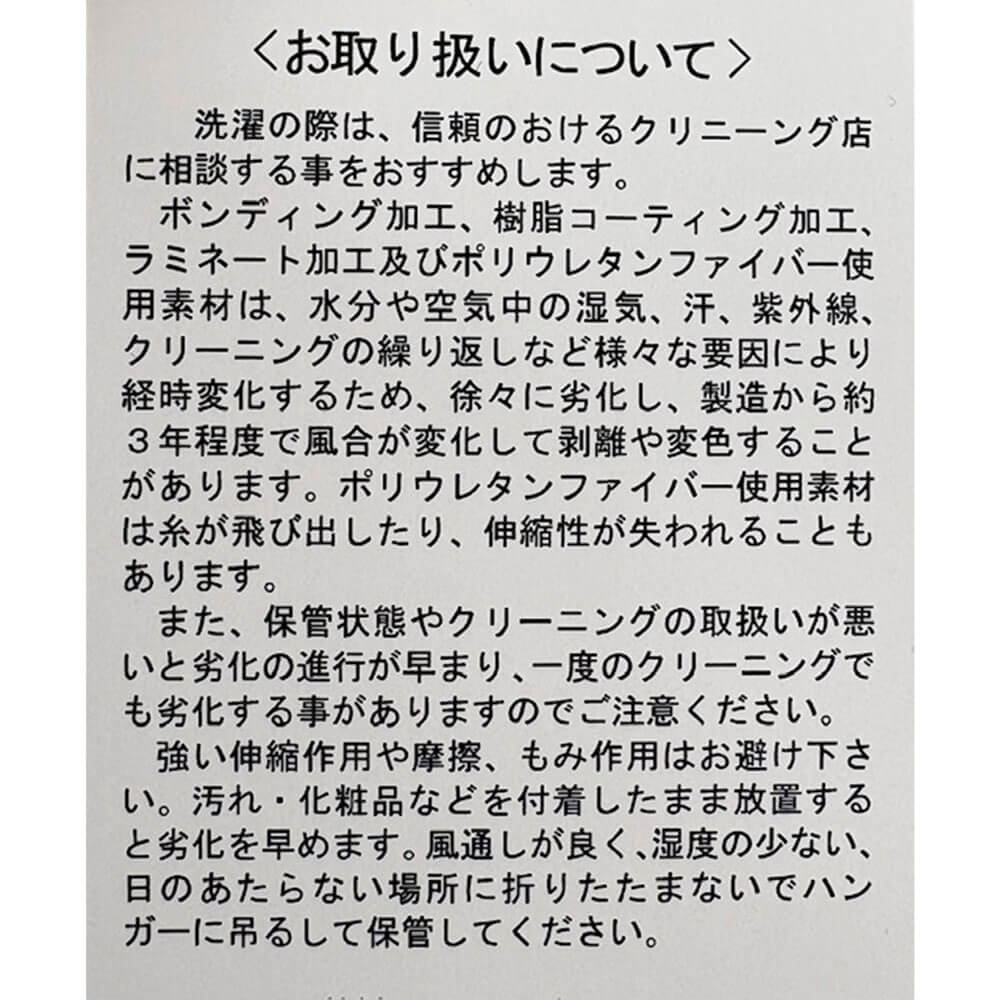 〈お取り扱いについて〉
洗濯の際は、信頼のおけるクリニーング店
に相談する事をおすすめします。
ボンディング加工、樹脂コーティング加工、
ラミネート加工及びポリウレタンファイバー使
用素材は、水分や空気中の湿気、汗、紫外線、
クリーニングの繰り返しなど様々な要因により
経時変化するため、徐々に劣化し、製造から約
3年程度で風合が変化して剥離や変色すること
があります。ポリウレタンファイバー使用素材
は糸が飛び出したり、伸縮性が失われることも
あります。
また、保管状態やクリーニングの取扱いが悪
いと劣化の進行が早まり、一度のクリーニングで
も劣化する事がありますのでご注意ください。
強い伸縮作用や摩擦、もみ作用はお避け下さ
い。汚れ・化粧品などを付着したまま放置する
と劣化を早めます。風通しが良く、湿度の少ない、
日のあたらない場所に折りたたまないでハン
ガーに吊るして保管してください。